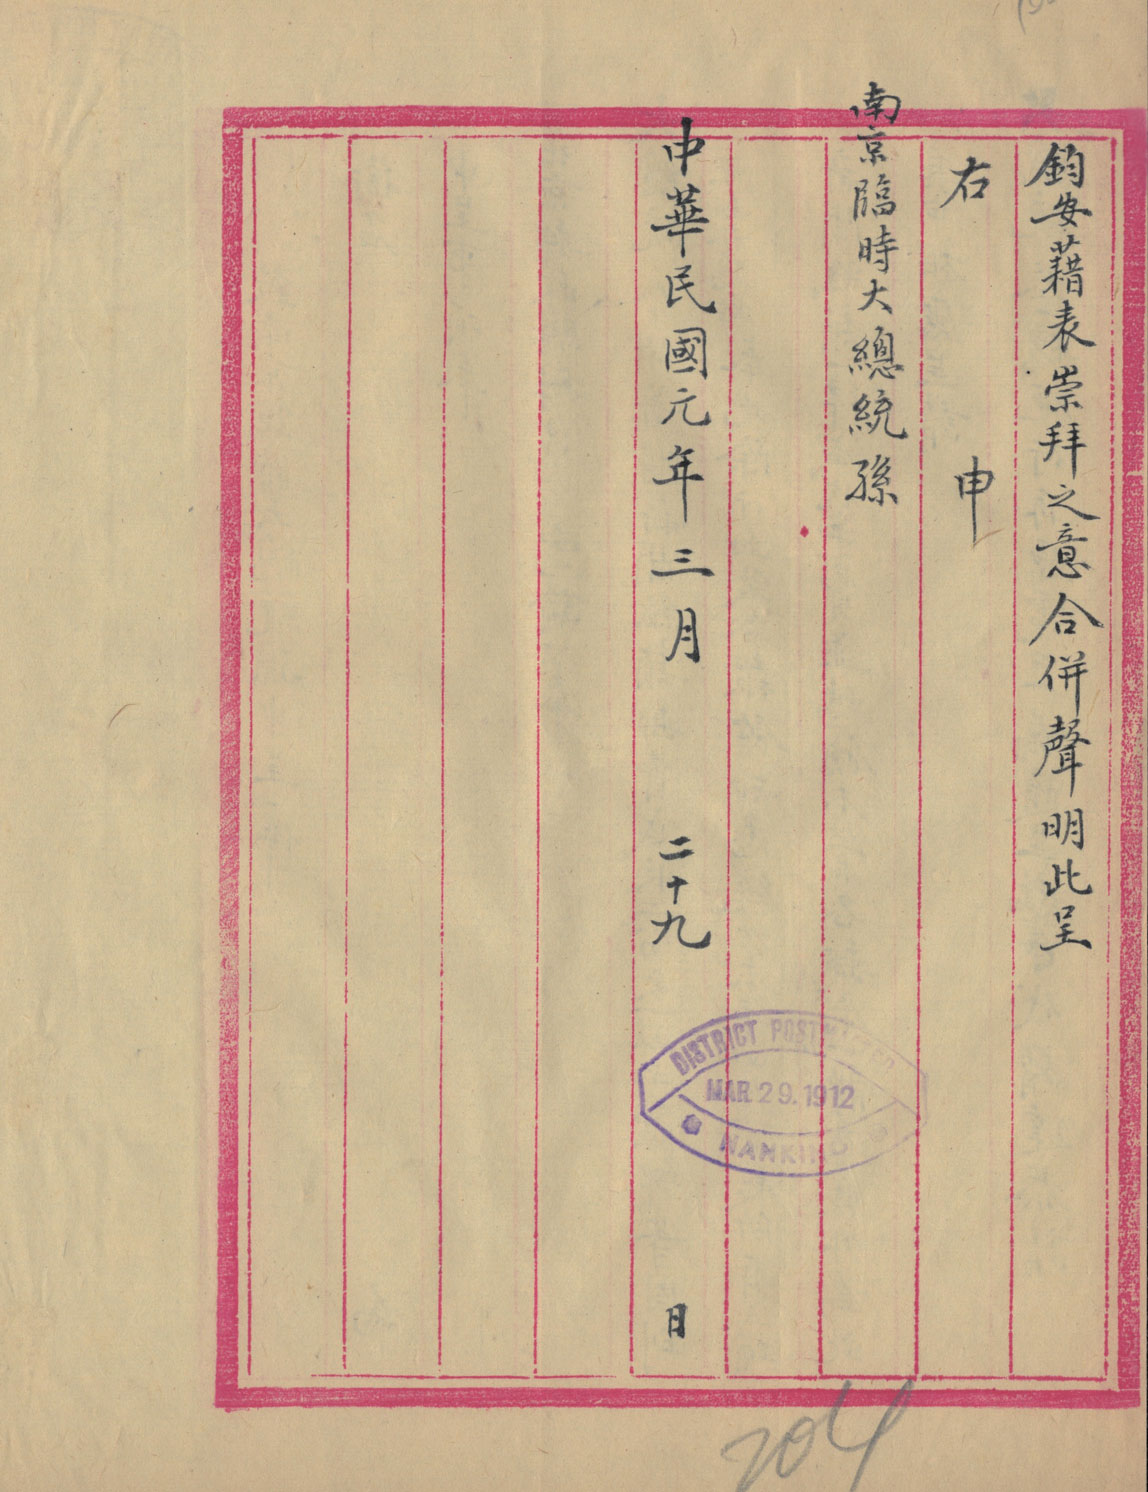 鈞安藉表崇拜之意合併聲明此呈
右 申
南京臨時大總統孫
中華民國元年三月 二十九 日
DISTRICT
MAR 29. 1912
NANKING
204